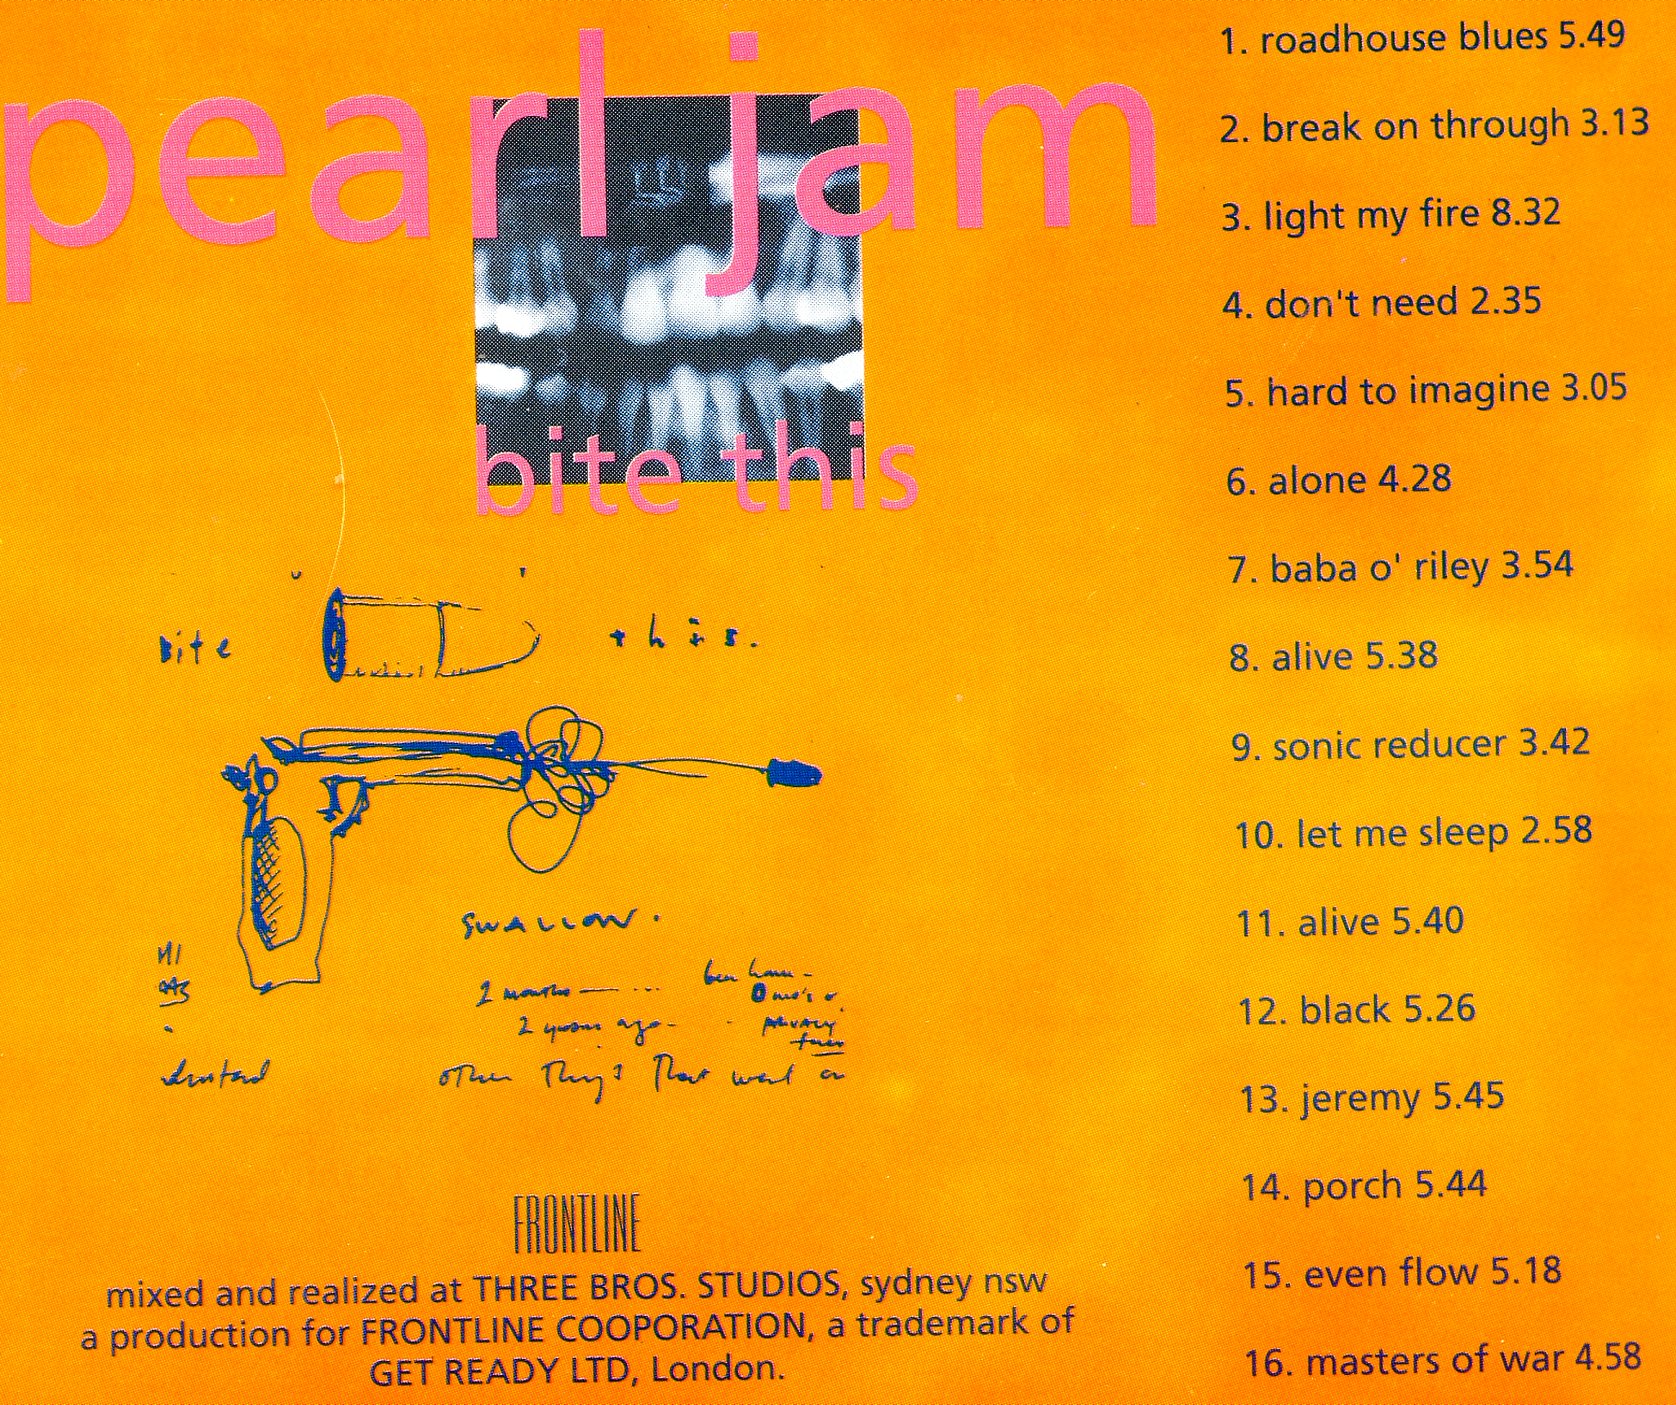 pearl jam
bite this
bite this.
SWALLOW.
2 months
2 years ago-
PRIVACY
other things that went on
FRONTLINE
mixed and realized at THREE BROS. STUDIOS, sydney nsw
a production for FRONTLINE COOPORATION, a trademark of
GET READY LTD, London.
1. roadhouse blues 5.49
2. break on through 3.13
3. light my fire 8.32
4. don't need 2.35
5. hard to imagine 3.05
6. alone 4.28
7. baba o' riley 3.54
8. alive 5.38
9. sonic reducer 3.42
10. let me sleep 2.58
11. alive 5.40
12. black 5.26
13. jeremy 5.45
14. porch 5.44
15. even flow 5.18
16. masters of war 4.58